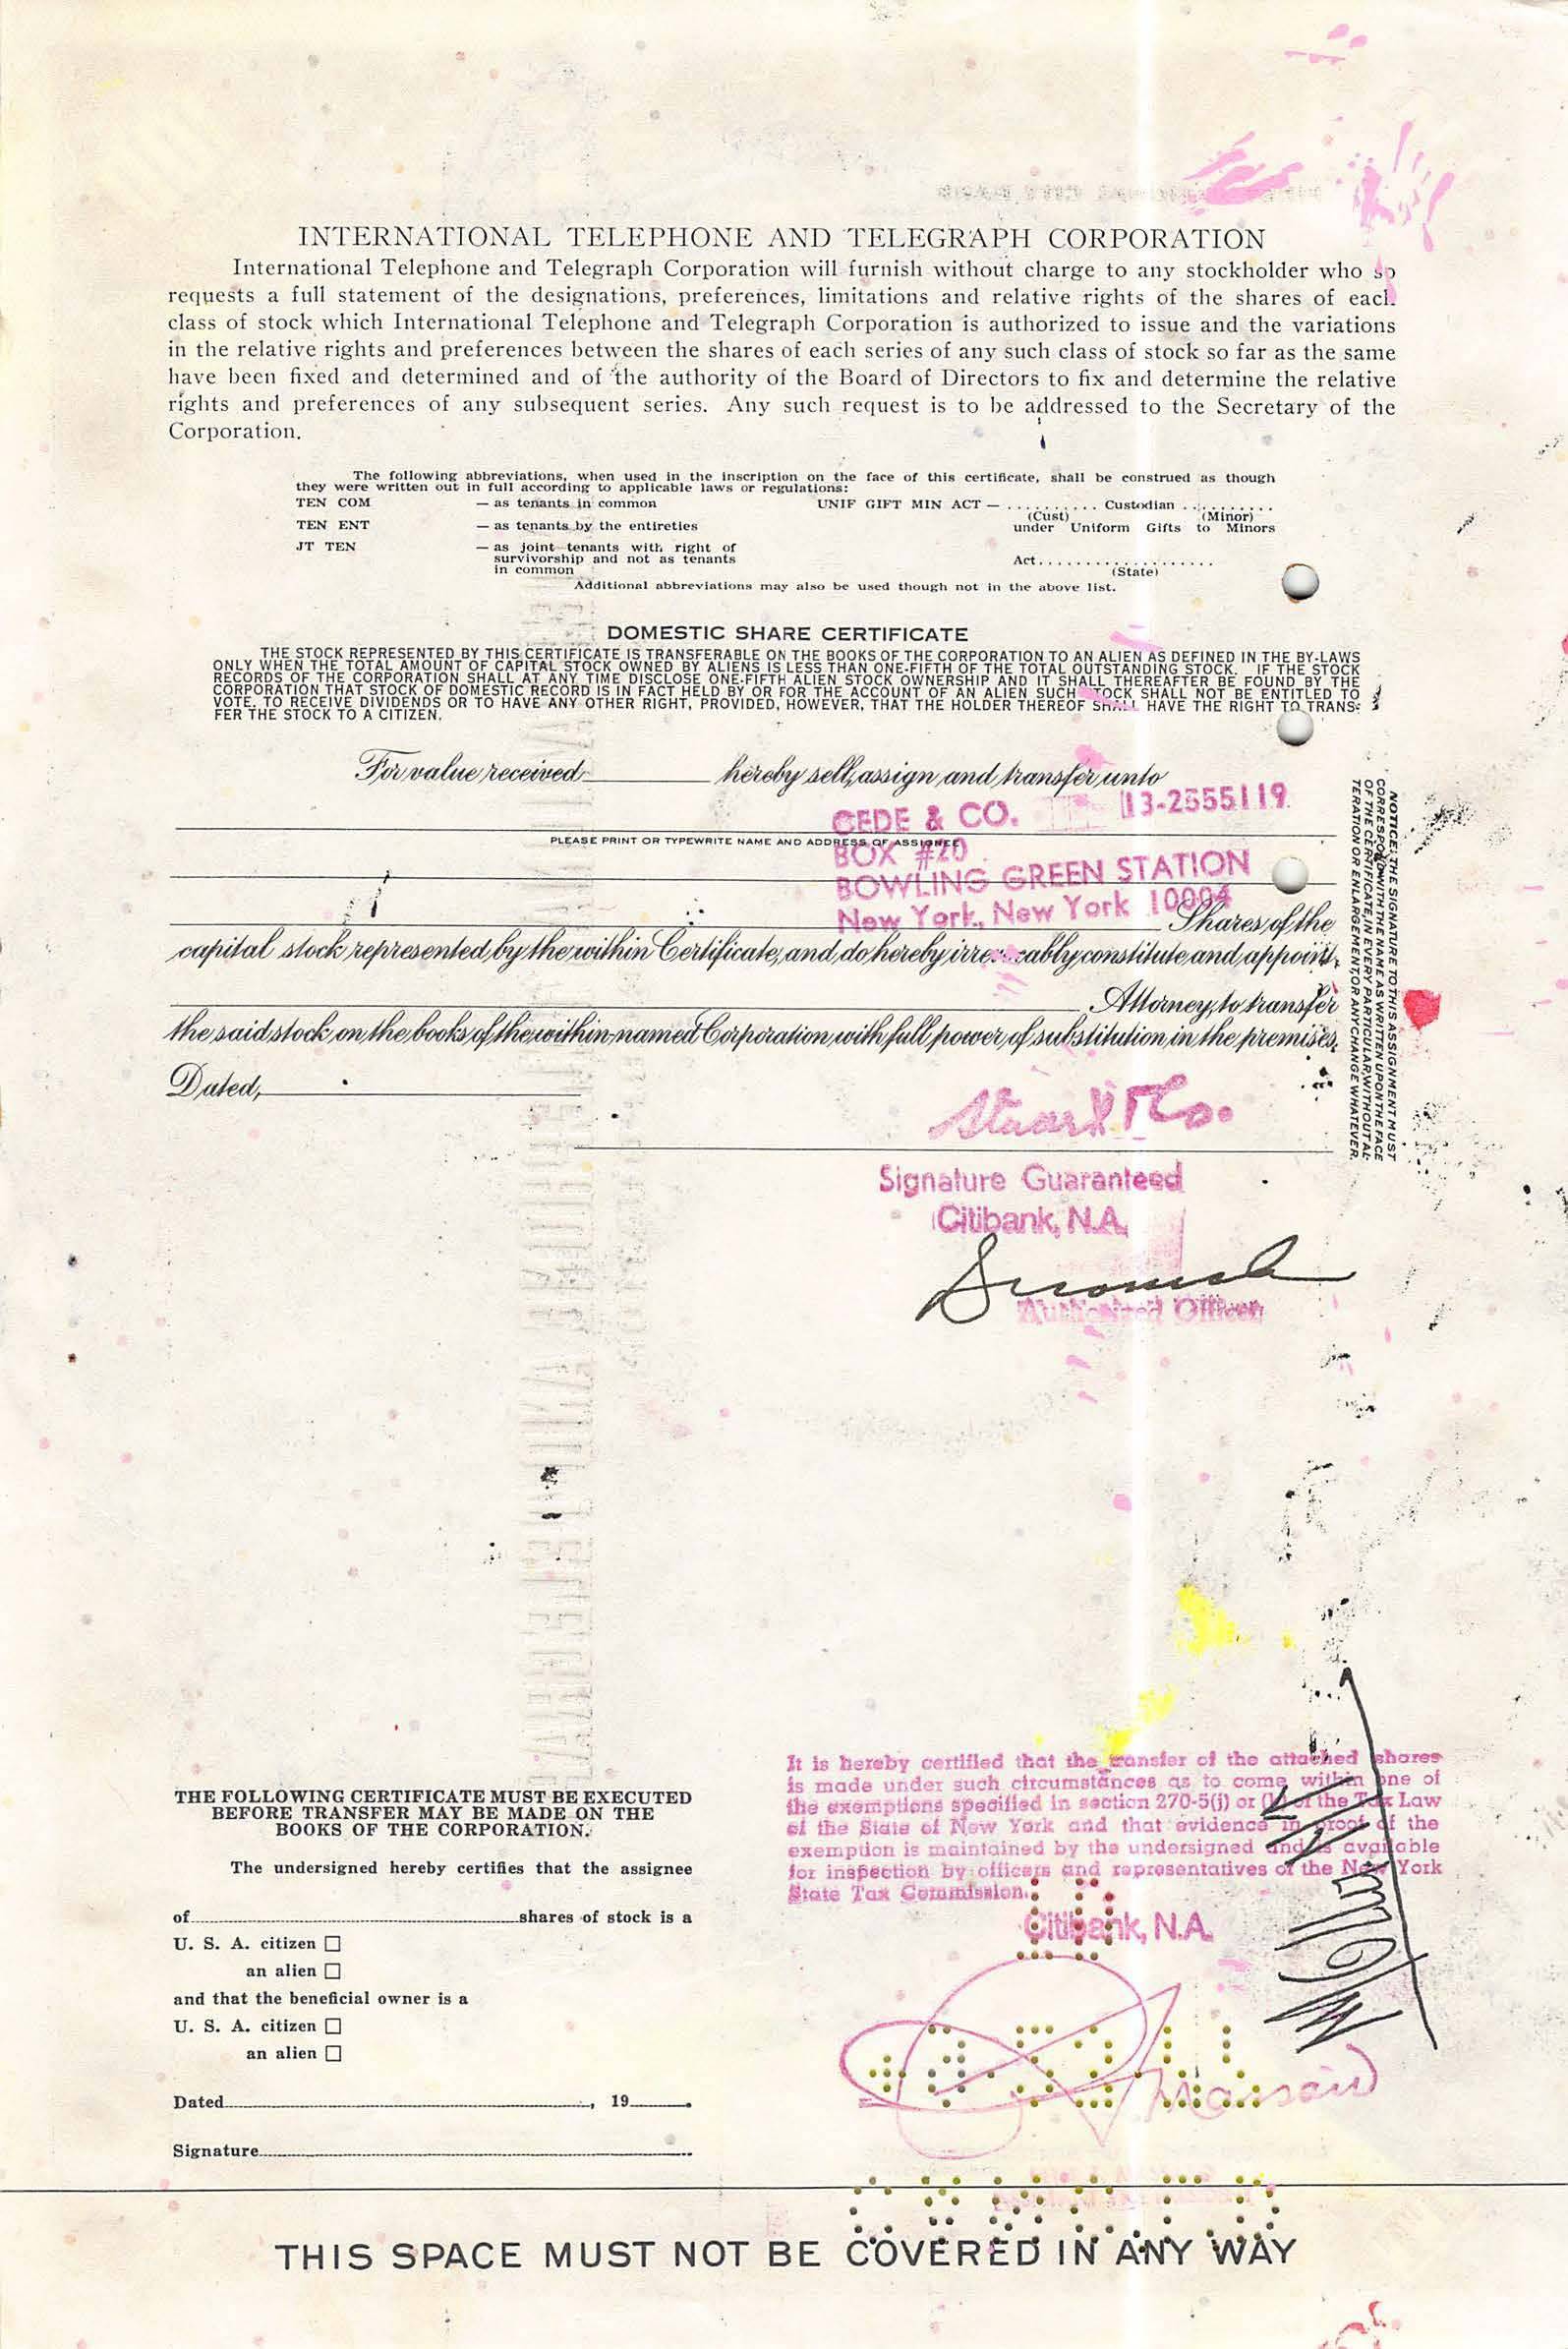 INTERNATIONAL TELEPHONE AND TELEGRAPH CORPORATION
International Telephone and Telegraph Corporation will furnish without charge to any stockholder who so
requests a full statement of the designations, preferences, limitations and relative rights of the shares of each
class of stock which International Telephone and Telegraph Corporation is authorized to issue and the variations
in the relative rights and preferences between the shares of each series of any such class of stock so far as the same
have been fixed and determined and of the authority of the Board of Directors to fix and determine the relative
rights and preferences of any subsequent series. Any such request is to be addressed to the Secretary of the
Corporation.
The following abbreviations, when used in the inscription on the face of this certificate, shall be construed as though
they were written out in full according to applicable laws or regulations:
TEN COM — as tenants in common UNIF GIFT MIN ACT — .......... Custodian ..........
(Cust) (Minor)
TEN ENT — as tenants by the entireties under Uniform Gifts to Minors
JT TEN — as joint tenants with right of
survivorship and not as tenants Act....................
in common (State)
Additional abbreviations may also be used though not in the above list.
DOMESTIC SHARE CERTIFICATE
THE STOCK REPRESENTED BY THIS CERTIFICATE IS TRANSFERABLE ON THE BOOKS OF THE CORPORATION TO AN ALIEN AS DEFINED IN THE BY-LAWS
ONLY WHEN THE TOTAL AMOUNT OF CAPITAL STOCK OWNED BY ALIENS IS LESS THAN ONE-FIFTH OF THE TOTAL OUTSTANDING STOCK. IF THE STOCK
RECORDS OF THE CORPORATION SHALL AT ANY TIME DISCLOSE ONE-FIFTH ALIEN STOCK OWNERSHIP AND IT SHALL THEREAFTER BE FOUND BY THE
CORPORATION THAT STOCK OF DOMESTIC RECORD IS IN FACT HELD BY OR FOR THE ACCOUNT OF AN ALIEN SUCH STOCK SHALL NOT BE ENTITLED TO
VOTE, TO RECEIVE DIVIDENDS OR TO HAVE ANY OTHER RIGHT, PROVIDED, HOWEVER, THAT THE HOLDER THEREOF SHALL HAVE THE RIGHT TO TRANS-
FER THE STOCK TO A CITIZEN.
For value received hereby sell, assign and transfer unto
CEDE & CO. 13-2555119
PLEASE PRINT OR TYPEWRITE NAME AND ADDRESS OF ASSIGNEE
BOX #20
BOWLING GREEN STATION
New York, New York 10004
Shares of the
capital stock represented by the within Certificate, and do hereby irrevocably constitute and appoint
Attorney, to transfer
the said stock on the books of the within-named Corporation with full power of substitution in the premises.
Dated,
NOTICE: THE SIGNATURE TO THIS ASSIGNMENT MUST
CORRESPOND WITH THE NAME AS WRITTEN UPON THE FACE
OF THE CERTIFICATE, IN EVERY PARTICULAR, WITHOUT AL-
TERATION OR ENLARGEMENT, OR ANY CHANGE WHATEVER.
Signature Guaranteed
Citibank, N.A.
Authorized Officer
It is hereby certified that the transfer of the attached shares
is made under such circumstances as to come within one of
the exemptions specified in section 270-5(j) or (k) of the Tax Law
of the State of New York and that evidence in proof of the
exemption is maintained by the undersigned and is available
for inspection by officers and representatives of the New York
State Tax Commission.
Citibank, N.A.
THE FOLLOWING CERTIFICATE MUST BE EXECUTED
BEFORE TRANSFER MAY BE MADE ON THE
BOOKS OF THE CORPORATION.
The undersigned hereby certifies that the assignee
of shares of stock is a
U. S. A. citizen ☐
an alien ☐
and that the beneficial owner is a
U. S. A. citizen ☐
an alien ☐
Dated , 19 .
Signature
THIS SPACE MUST NOT BE COVERED IN ANY WAY